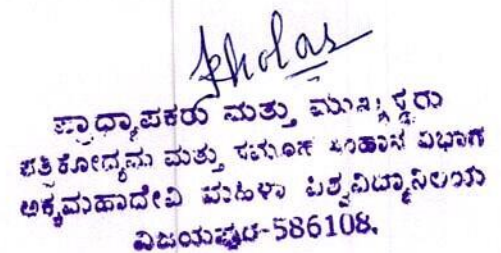 ಪ್ರಾಧ್ಯಾಪಕರು ಮತ್ತು ಮುಖ್ಯಸ್ಥರು
ಪತ್ರಿಕೋದ್ಯಮ ಮತ್ತು ಸಮೂಹ ಸಂಹನ ವಿಭಾಗ
ಅಕ್ಕಮಹಾದೇವಿ ಮಹಿಳಾ ವಿಶ್ವವಿದ್ಯಾನಿಲಯ
ವಿಜಯಪುರ-586108.